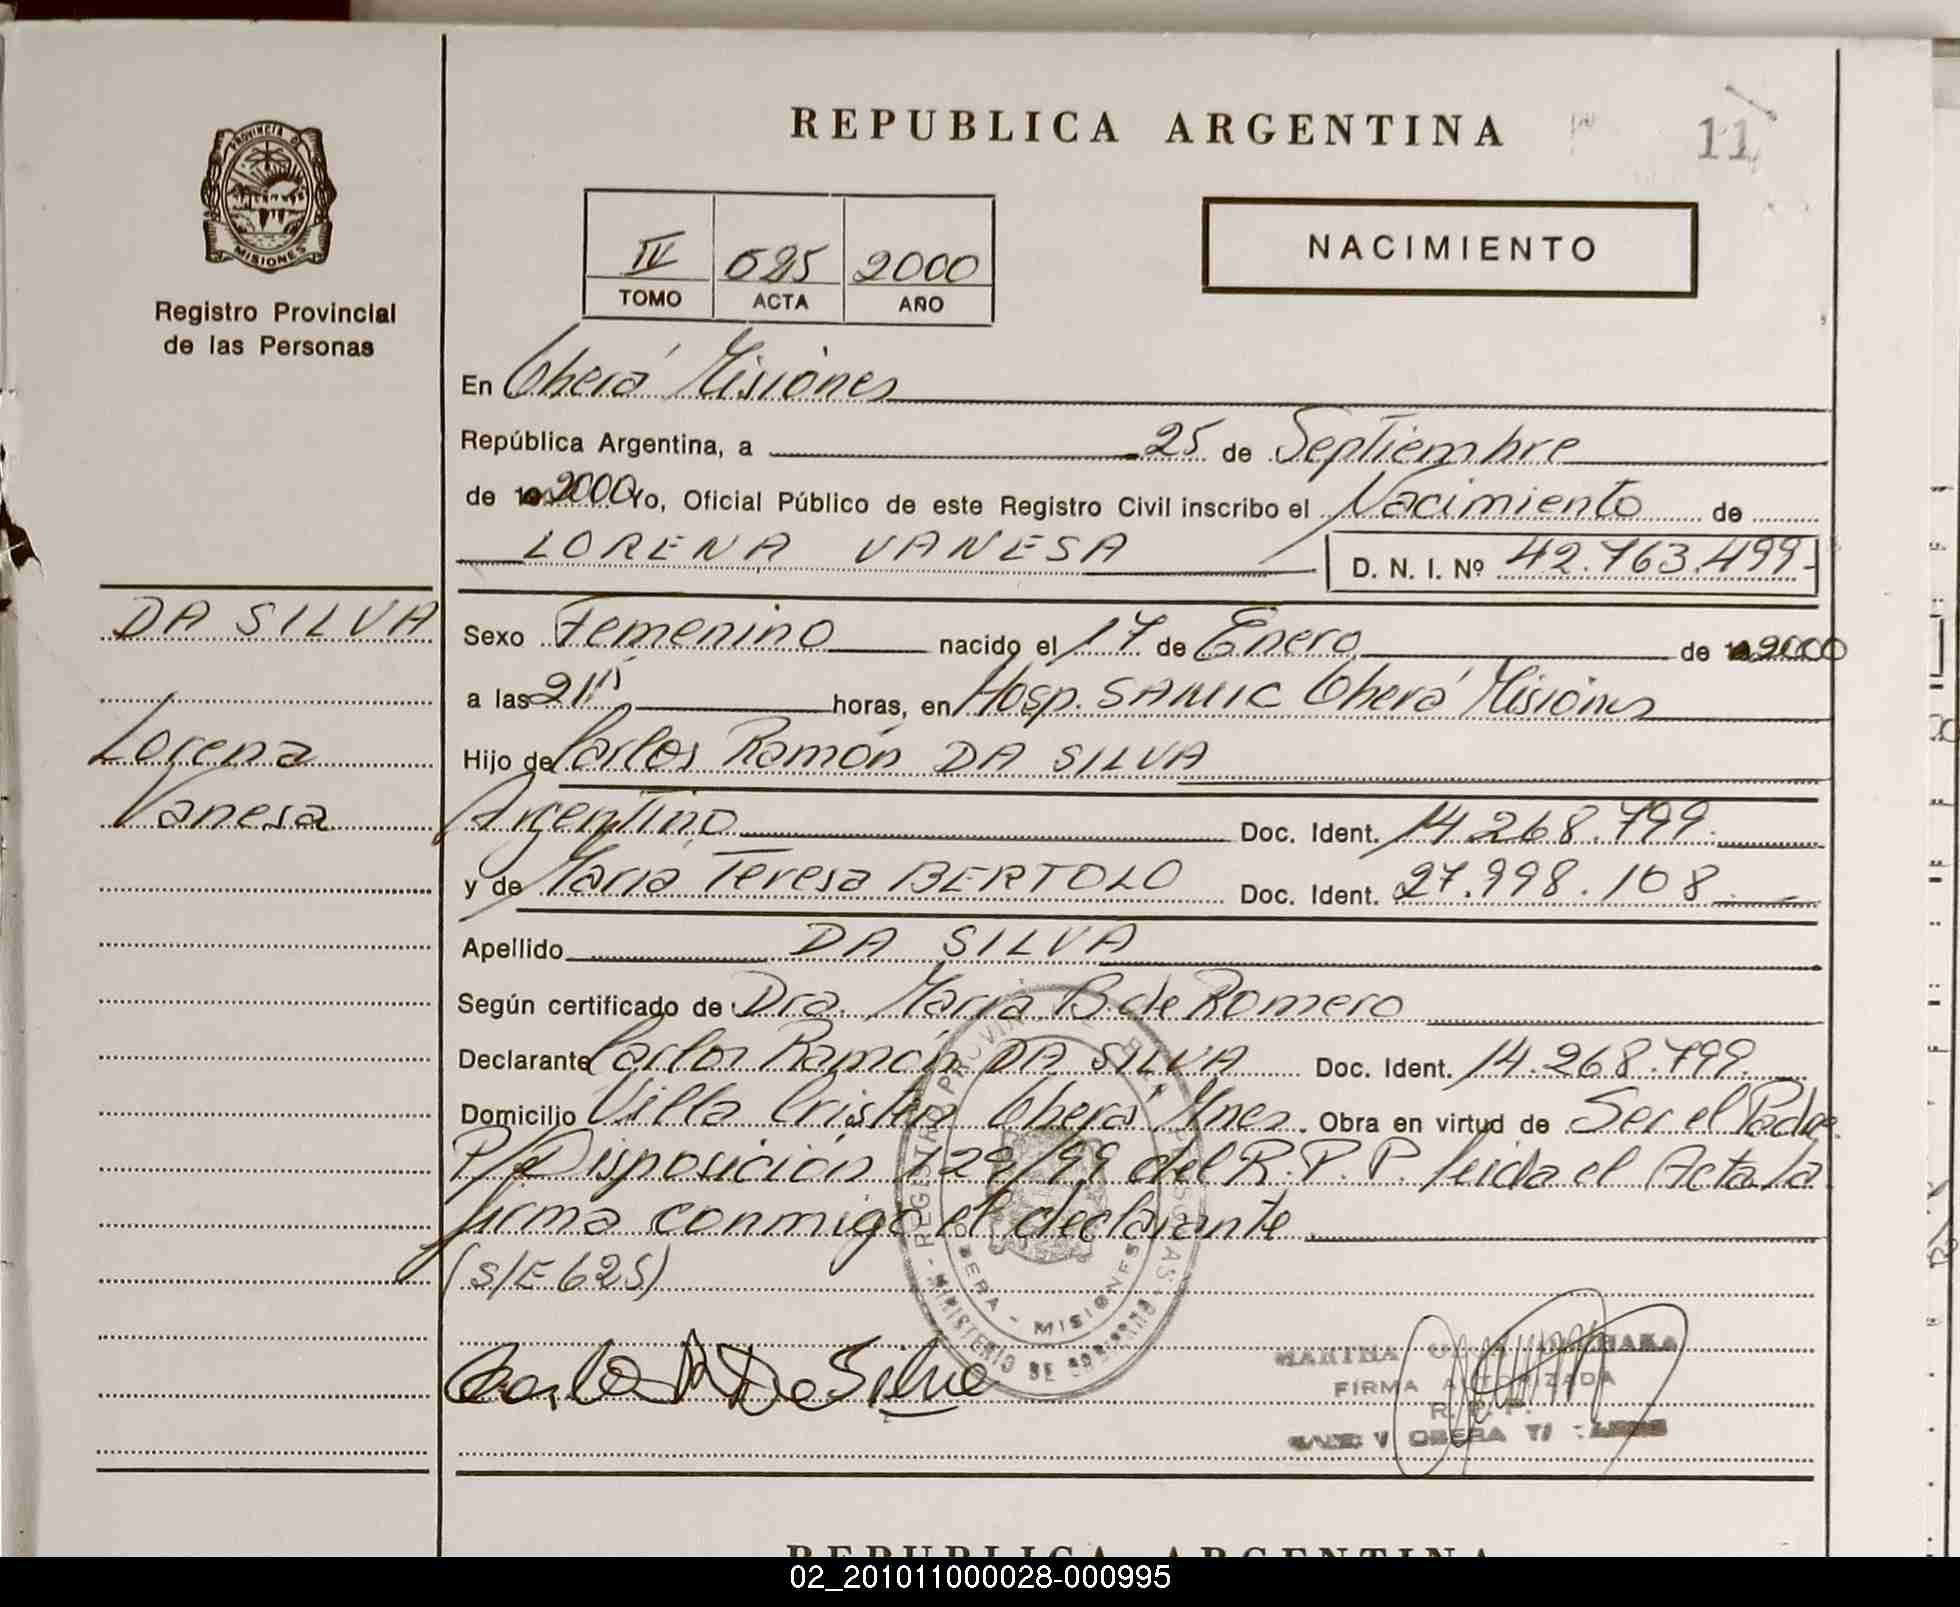 REPUBLICA ARGENTINA
11
PROVINCIA D
MISIONES
Registro Provincial
de las Personas
IV 625 2000
TOMO ACTA AÑO
NACIMIENTO
En Oberá Misiones
República Argentina, a 25 de Septiembre
de 2000 Yo, Oficial Público de este Registro Civil inscribo el Nacimiento de
LORENA VANESA D. N. I. Nº 42.763.499-
DA SILVA
Lorena
Vanesa
Sexo Femenino nacido el 17 de Enero de 2000
a las 21 horas, en Hosp. SAMIC Oberá Misiones
Hijo de Carlos Ramón DA SILVA
Argentino Doc. Ident. 14.268.799.
y de María Teresa BERTOLO Doc. Ident. 27.998.108.
Apellido DA SILVA
Según certificado de Dra. María B. de Romero
Declarante Carlos Ramón DA SILVA Doc. Ident. 14.268.799.
Domicilio Villa Cristen Oberá Mnes. Obra en virtud de Ser el Padre.
P/Disposición 129/99 del R.P.P. leida el Acta la
firma conmigo el declarante
(S/E 625)
REGISTRO PROVINCIAL DE LAS PERSONAS
OBERA - MISIONES
MINISTERIO DE GOBIERNO
Carlos R Da Silva
MARINA
FIRMA AUTORIZADA
R. P. P.
OBERA
REPUBLICA ARGENTINA
02_201011000028-000995